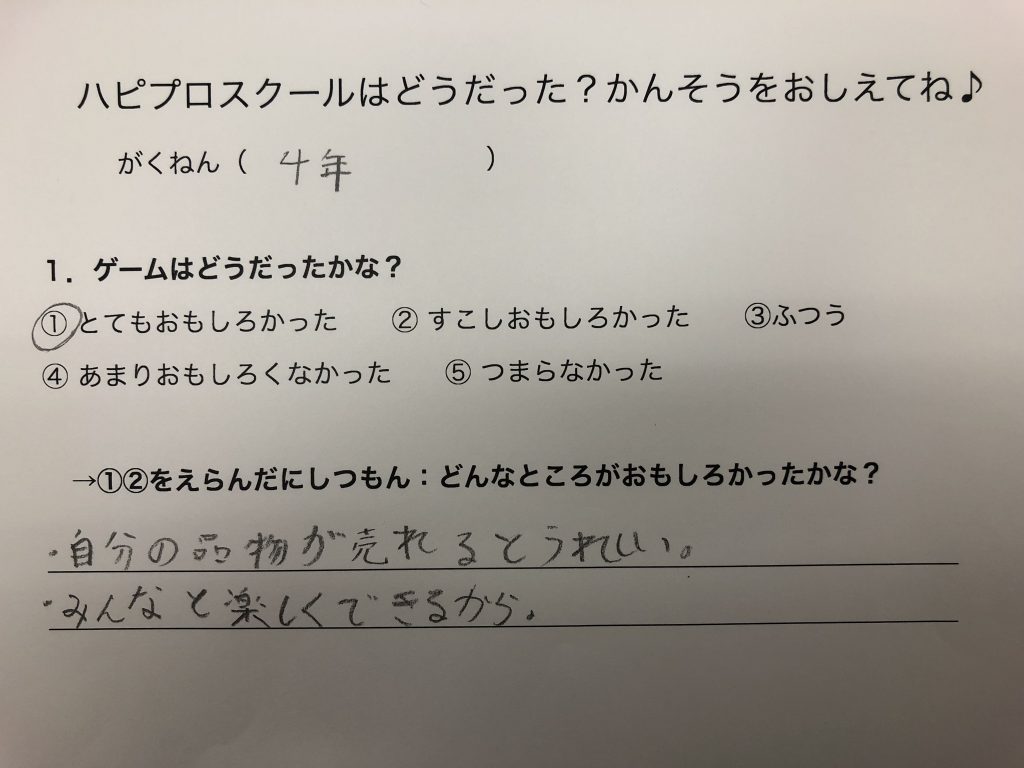 ハピプロスクールはどうだった？かんそうをおしえてね♪
がくねん（ 4年 ）
1．ゲームはどうだったかな？
① とてもおもしろかった ② すこしおもしろかった ③ふつう
④ あまりおもしろくなかった ⑤ つまらなかった
→①②をえらんだにしつもん：どんなところがおもしろかったかな？
・自分の品物が売れるとうれしい。
・みんなと楽しくできるから。